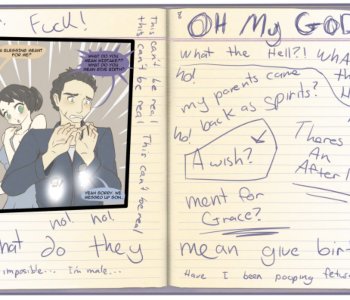 Fuck!
A BLESSING MEANT
FOR ME?
WHAT DO YOU
MEAN MISTAKE??
WHAT DO YOU
MEAN GIVE BIRTH?
YEAH SORRY, WE
MESSED UP SON.
This can't be real This can't be real
this can't be real
no! no!
what do they
imposible... I'm male...
OH MY GOD
What the Hell?!
my parents came
ho!
ho! back as spirits?
A wish?
Theres
An
After
ment for
Grace?
mean give birt
Have I been pooping fetu